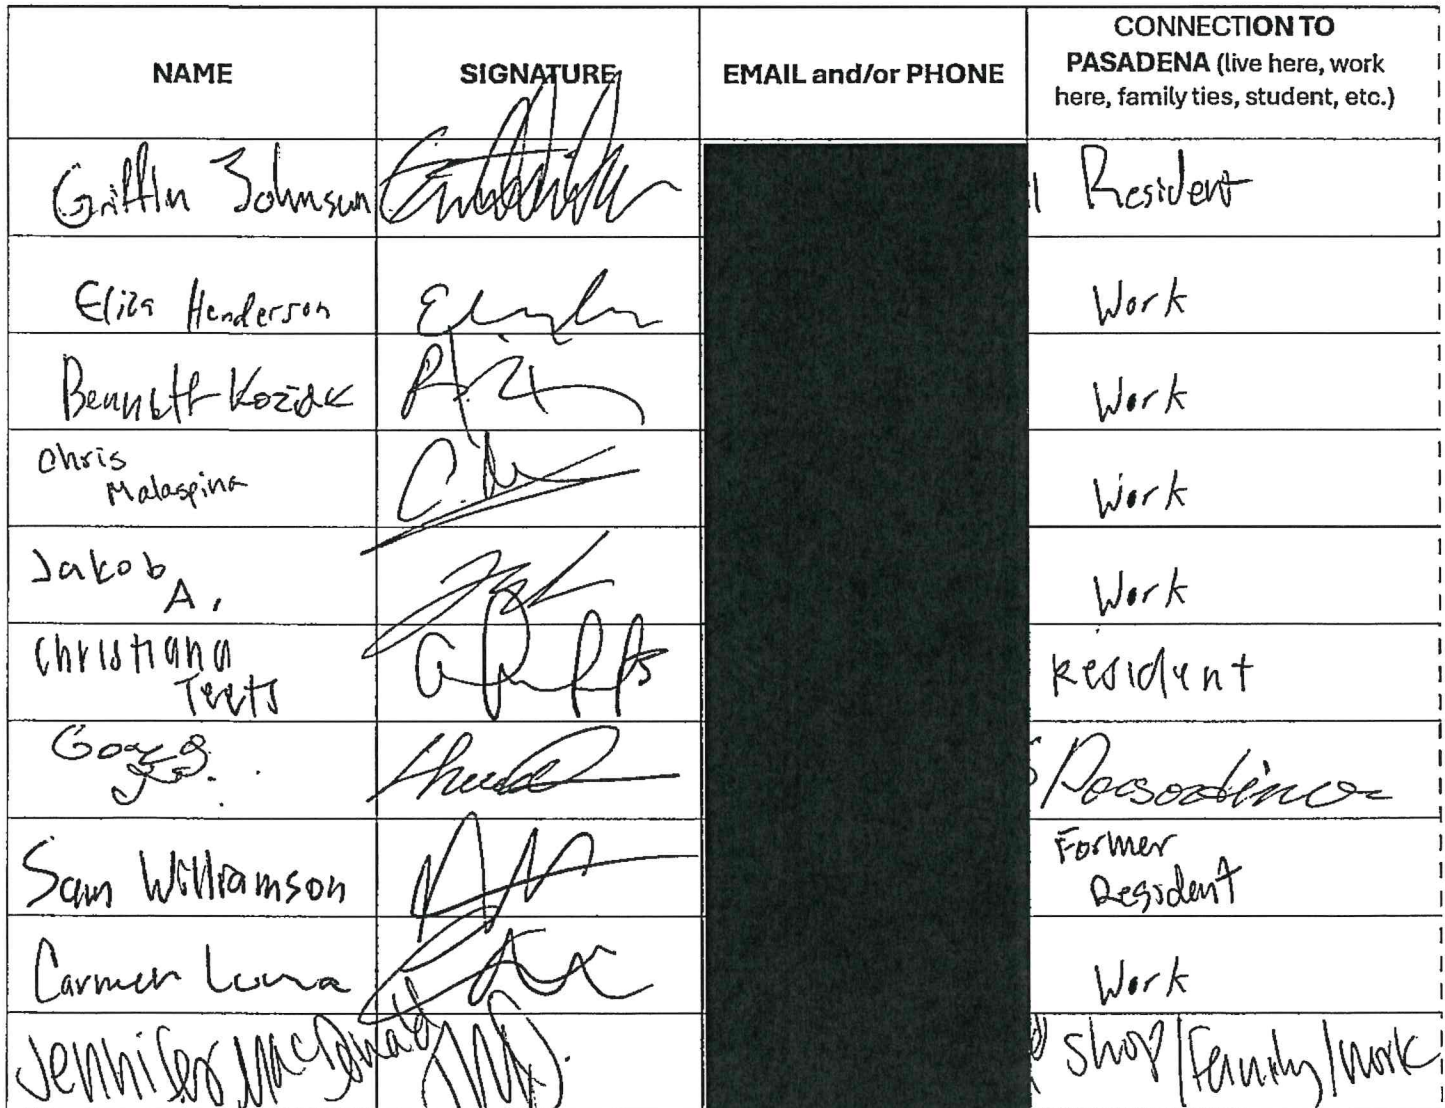 NAME
SIGNATURE
EMAIL and/or PHONE
CONNECTION TO
PASADENA (live here, work
here, family ties, student, etc.)
Griffin Johnson
Resident
Eliza Henderson
Work
Bennett Kozak
Work
Chris
Malaspina
Work
Jakob
A.
Work
Christiana
Teets
Resident
Former
Sam Williamson
Resident
Carmen Luna
Work
Jennifer MacDonald
shop/Family/work